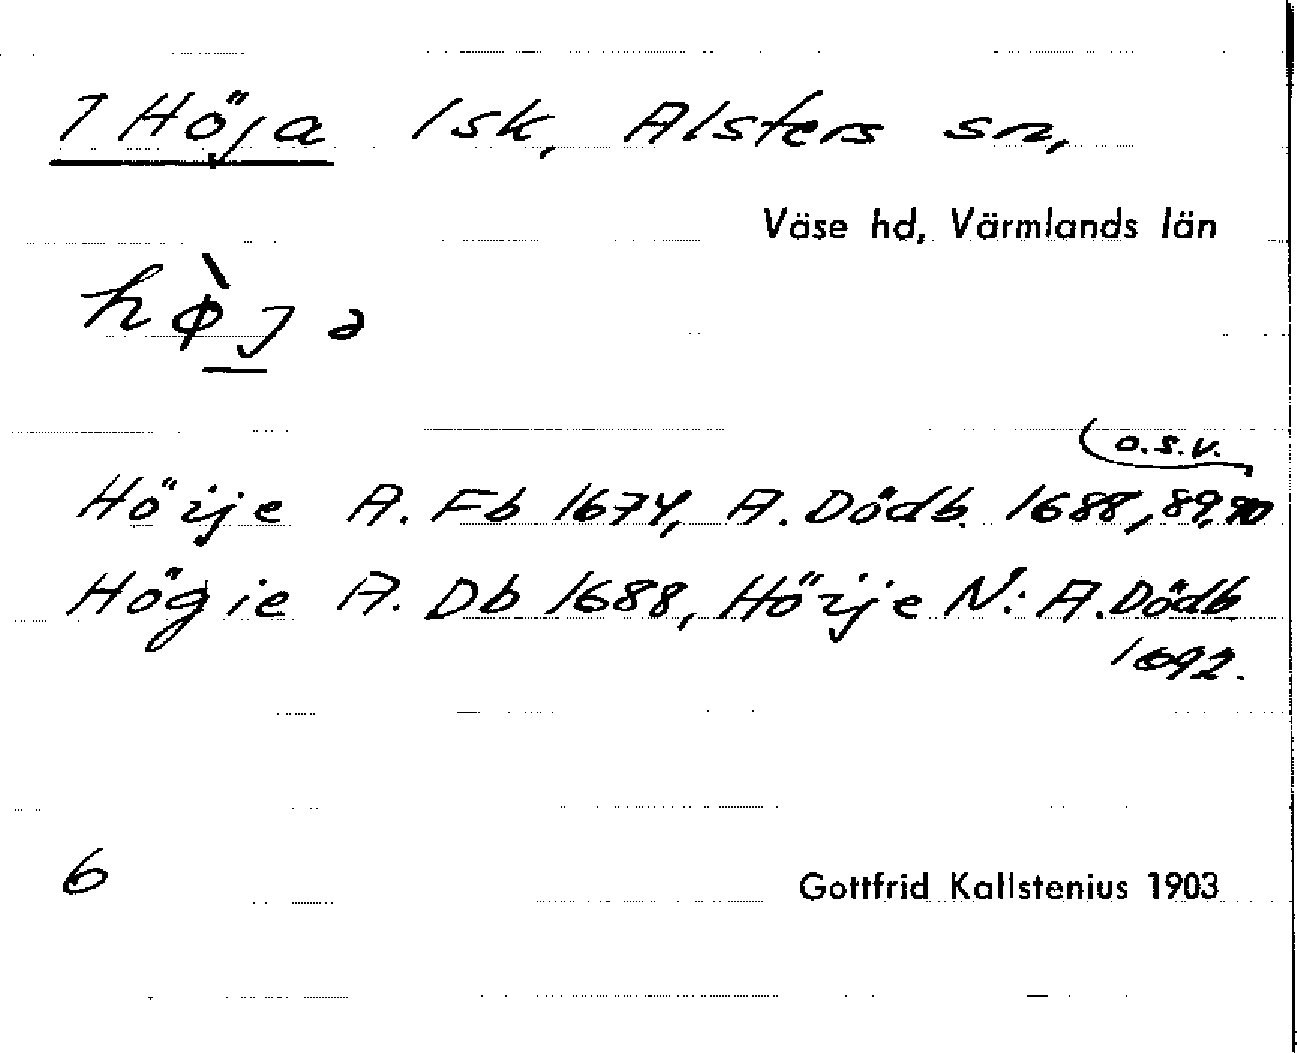 1 Höja lsk, Alsters sn,
Väse hd, Värmlands län
hø̀jə
o.s.v.
Höije A. Fb 1674, A. Dödb. 1688, 89, 90
Högie A. Db 1688, Höije N: A. Dödb.
1692.
6
Gottfrid Kallstenius 1903